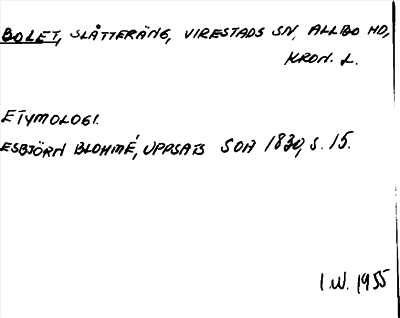 BOLET, SLÅTTERÄNG, VIRESTADS SN, ALLBO HD,
KRON. L.
ETYMOLOGI.
ESBJÖRN BLOHMÉ, UPPSATS SOA 1830, S. 15.
I.W. 1955